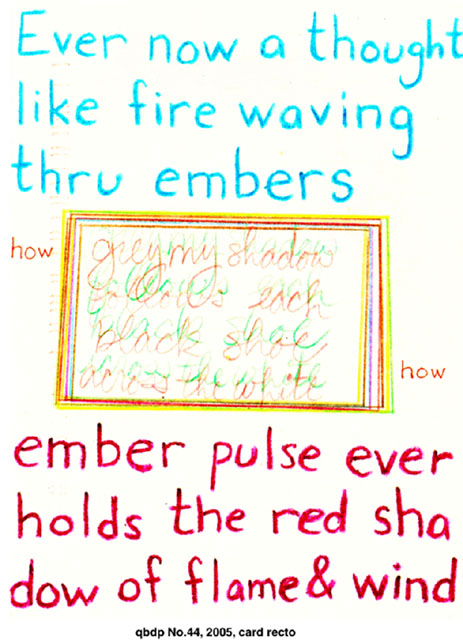 Ever now a thought
like fire waving
thru embers
how
grey my shadow
follows each
black shoe
across the white
how
ember pulse ever
holds the red sha
dow of flame& wind
qbdp No.44, 2005, card recto